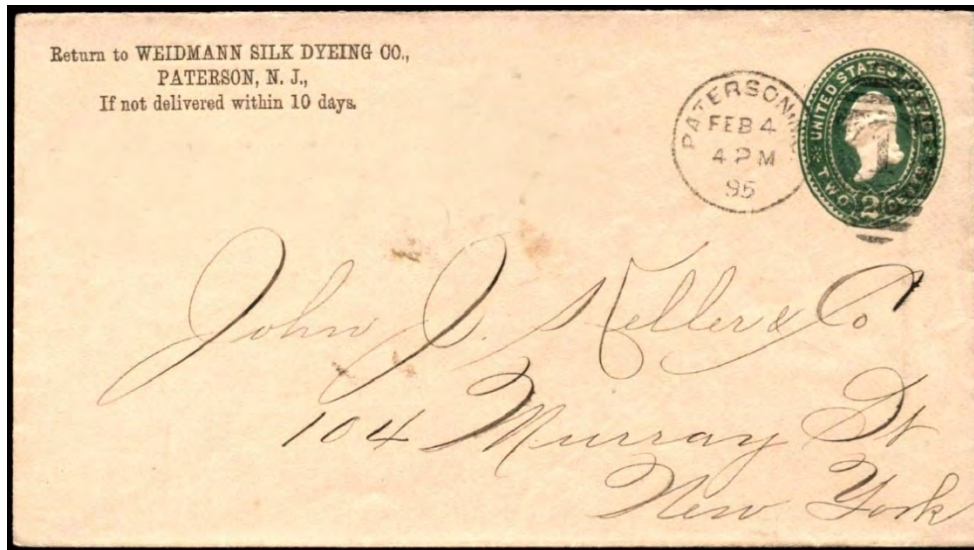 Return to WEIDMANN SILK DYEING CO.,
PATERSON, N. J.,
If not delivered within 10 days.
PATERSON
FEB 4
4 PM
95
UNITED STATES
TWO 2
John J. Keller & Co
104 Murray St
New York